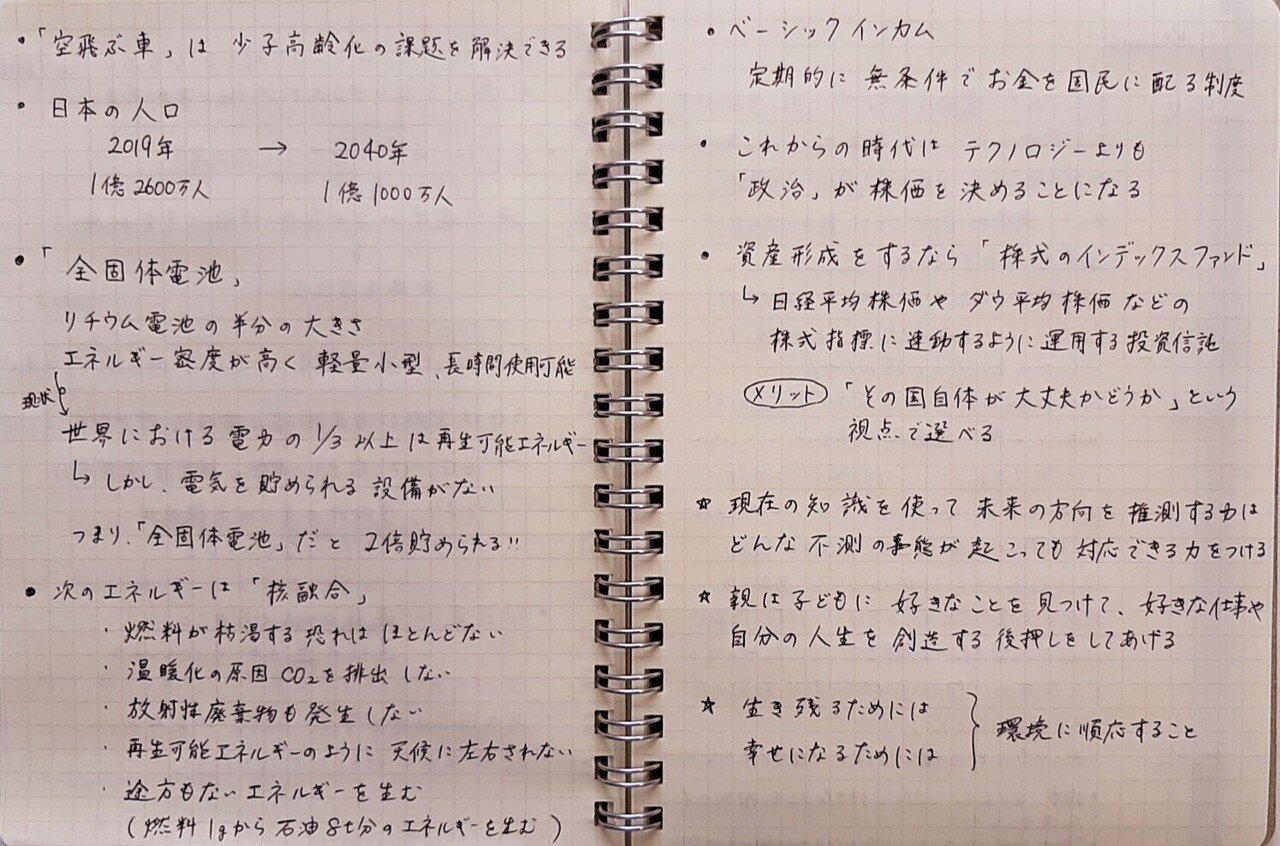 ・「空飛ぶ車」は 少子高齢化の課題を解決できる
・日本の人口
2019年 → 2040年
1億2600万人 1億1000万人
・「全固体電池」
リチウム電池の半分の大きさ
エネルギー密度が高く 軽量小型、長時間使用可能
現状
世界における電力の1/3以上は再生可能エネルギー
↳ しかし、電気を貯められる設備がない
つまり、「全固体電池」だと 2倍貯められる!!
・次のエネルギーは「核融合」
・燃料が枯渇する恐れはほとんどない
・温暖化の原因CO2を排出しない
・放射性廃棄物も発生しない
・再生可能エネルギーのように天候に左右されない
・途方もないエネルギーを生む
(燃料1gから石油8t分のエネルギーを生む)
・ベーシックインカム
定期的に無条件でお金を国民に配る制度
・これからの時代は テクノロジーよりも
「政治」が株価を決めることになる
・資産形成をするなら「株式のインデックスファンド」
↳ 日経平均株価や ダウ平均株価などの
株式指標に連動するように運用する投資信託
メリット 「その国自体が大丈夫かどうか」という
視点で選べる
☆ 現在の知識を使って 未来の方向を推測する力は
どんな不測の事態が起こっても対応できる力をつける
☆ 親は子どもに 好きなことを見つけて、好きな仕事や
自分の人生を創造する後押しをしてあげる
☆ 生き残るためには
幸せになるためには
} 環境に順応すること